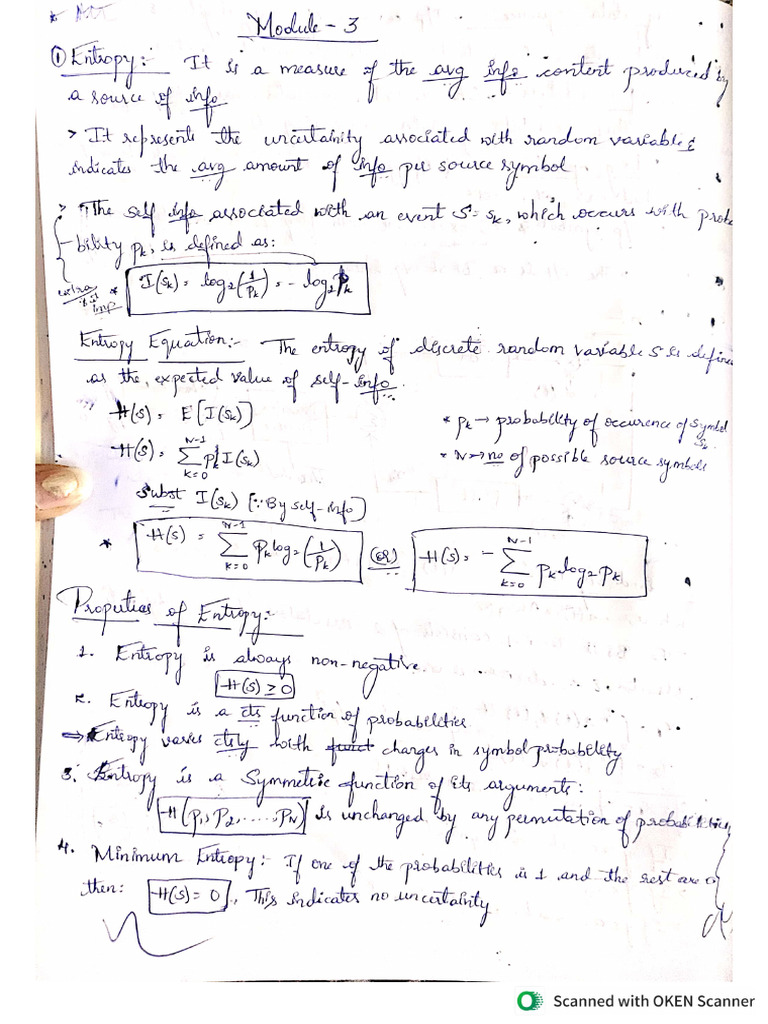 Module - 3
① Entropy:- It is a measure of the avg info content produced by
a source of info
> It represents the uncertainity associated with random variable &
indicates the avg amount of info per source symbol
> The self info associated with an event S = sₖ, which occurs with proba
bility pₖ, is defined as:
extra
imp
* I(sₖ) = log₂(1/pₖ) = - log₂ pₖ
Entropy Equation:- The entropy of discrete random variable S is define
as the, expected value of self-info.
H(s) = E[I(sₖ)]
* pₖ → probability of occurence of symbol sₖ
H(s) = Σ_{k=0}^{N-1} pₖ I(sₖ)
* N → no of possible source symbols
Subst I(sₖ) [∵ By self-info]
* H(s) = Σ_{k=0}^{N-1} pₖ log₂(1/pₖ) (OR) H(s) = - Σ_{k=0}^{N-1} pₖ log₂ pₖ
Properties of Entropy:-
1. Entropy is always non-negative.
H(s) ≥ 0
2. Entropy is a cts function of probabilities
⇒ Entropy varies ctsly with changes in symbol probability
3. Entropy is a Symmetric function of its arguments:
H(p₁, p₂, ....., pN) is unchanged by any permutation of probabilities
4. Minimum Entropy:- If one of the probabilities is 1 and the rest are 0
then: H(s) = 0, This indicates no uncertainity
Scanned with OKEN Scanner